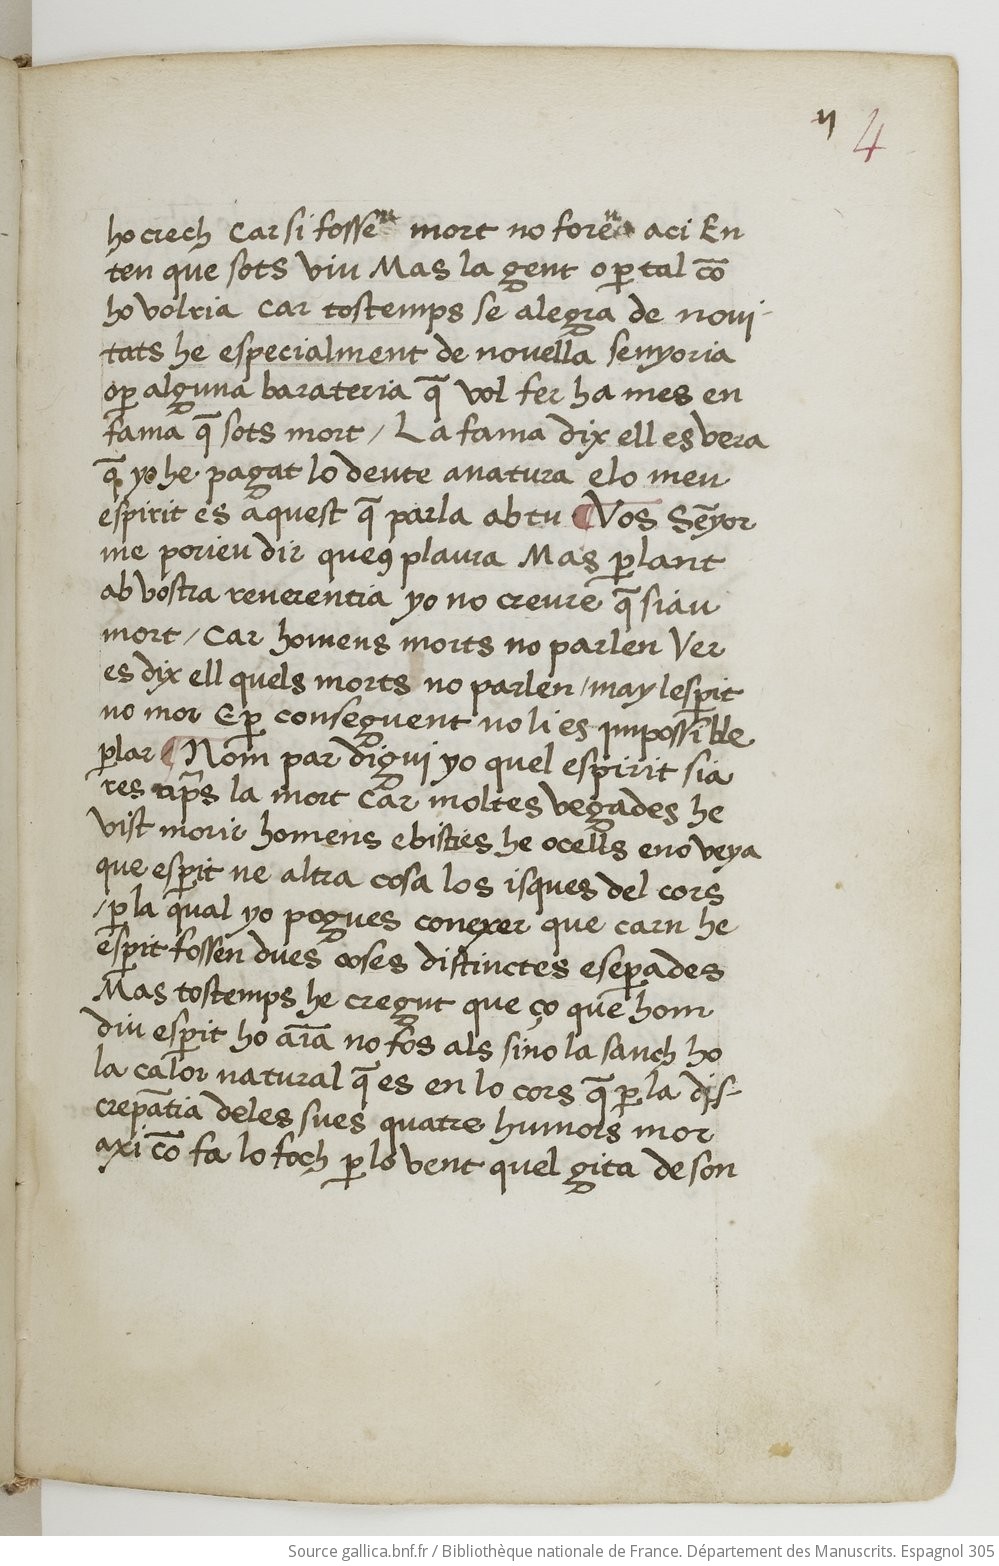 ij 4
ho crech Car si fosseu mort no foreu aci En
ten que sots viu Mas la gent o ꝑ tal cō
ho volria Car tostemps se alegra de noui-
tats he especialment de nouella senyoria
o ꝑ alguna barateria q̄ vol fer ha mes en
fama q̄ sots mort / La fama dix ell es vera
q̄ yo he pagat lo deute a natura e lo meu
espirit es aquest q̄ parla ab tu ¶ Vos Sēyor
me porieu dir queꝯ plaura Mas ꝑlant
ab vostra reuerentia yo no creure q̄ siau
mort / Car homens morts no parlen Ver
es dix ell quels morts no parlen / may lesꝑit
no mor E ꝑ conseguent no li es impossible
ꝑlar ¶ Nom par digui yo quel espirit sia
res ap̄s la mort Car moltes vegades he
vist morir homens e bisties he ocells e no veya
que esꝑit ne altra cosa los isques del cors
/ ꝑ la qual yo pogues conexer que carn he
esꝑit fossen dues coses distinctes e seꝑades
Mas tostemps he cregut que ço que hom
diu esꝑit ho aīa no fos als sino la sanch ho
la calor natural q̄ es en lo cors q̄ ꝑ la dis-
crepātia deles sues quatre humors mor
axi cō fa lo foch ꝑ lo vent quel gita de son
Source gallica.bnf.fr / Bibliothèque nationale de France. Département des Manuscrits. Espagnol 305